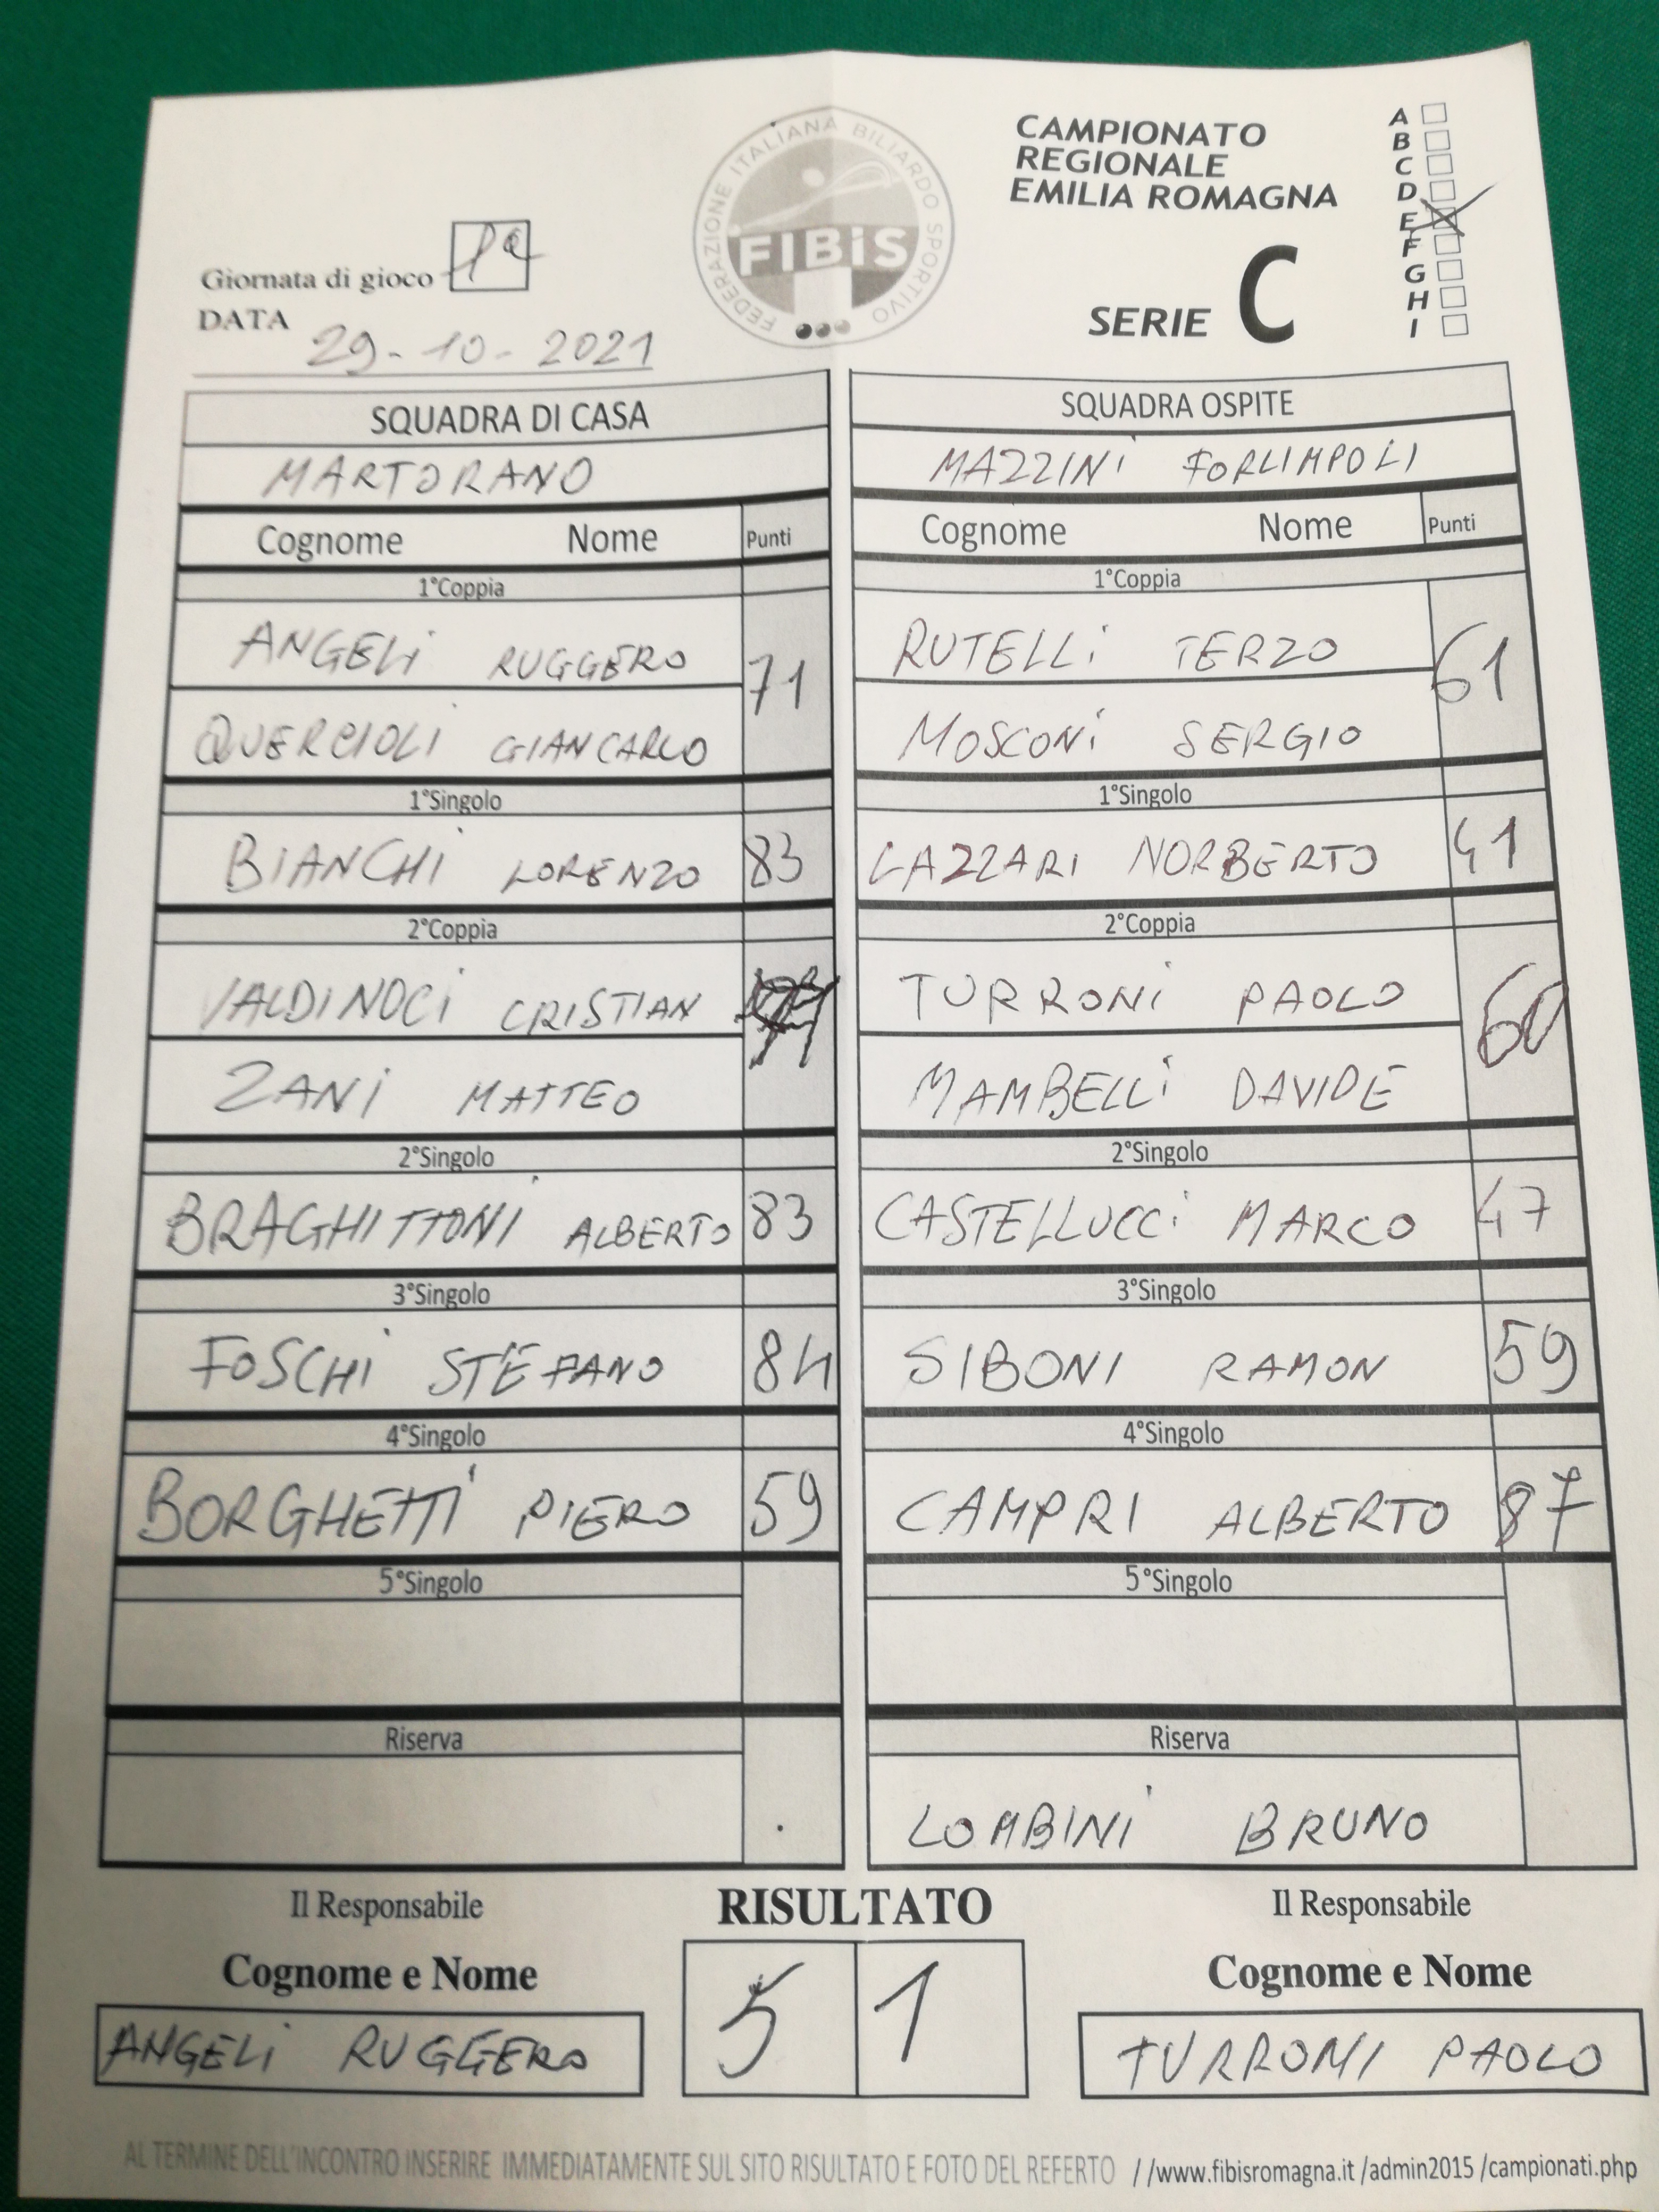 FEDERAZIONE ITALIANA BILIARDO SPORTIVO
FIBiS
CAMPIONATO
REGIONALE
EMILIA ROMAGNA
SERIE C
A
B
C
D
E
F
G
H
I
Giornata di gioco 1ª
DATA 29-10-2021
SQUADRA DI CASA
MARTORANO
Cognome Nome Punti
1°Coppia
ANGELi RUGGERO 71
QUERCIOLI GIANCARLO
1°Singolo
BIANCHI LORENZO 83
2°Coppia
VALDINOCi CRISTIAN
ZANi MATTEO
2°Singolo
BRAGHITTONI ALBERTO 83
3°Singolo
FOSCHi STEFANO 84
4°Singolo
BORGHETTI PIERO 59
5°Singolo
Riserva
SQUADRA OSPITE
MAZZINi FORLIMPOLI
Cognome Nome Punti
1°Coppia
RUTELLi TERZO 61
MOSCONi SERGIO
1°Singolo
LAZZARI NORBERTO 41
2°Coppia
TURRONi PAOLO 60
MAMBELLi DAVIDE
2°Singolo
CASTELLUCCi MARCO 47
3°Singolo
SIBONI RAMON 59
4°Singolo
CAMPRI ALBERTO 87
5°Singolo
Riserva
LOMBINI BRUNO
Il Responsabile
Cognome e Nome
ANGELi RUGGERO
RISULTATO
5 1
Il Responsabile
Cognome e Nome
TURRONI PAOLO
AL TERMINE DELL'INCONTRO INSERIRE IMMEDIATAMENTE SUL SITO RISULTATO E FOTO DEL REFERTO //www.fibisromagna.it /admin2015 /campionati.php